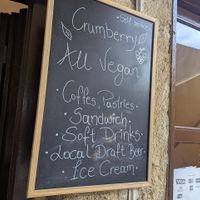 Crumberry
All Vegan
· Coffes, Pastries ·
· Sandwich ·
· Soft Drinks ·
· Local Draft Beer ·
· Ice Cream ·